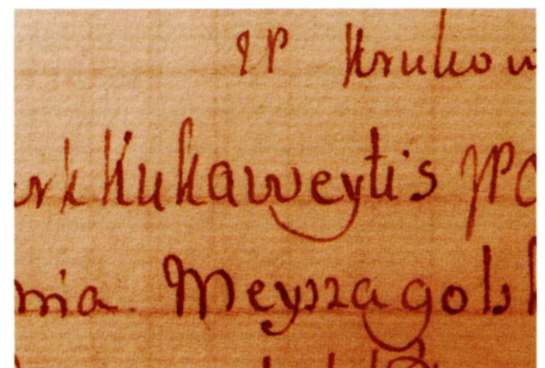 JP Krukow
ark Kukaweytis JPO
mia Meyszagolsk